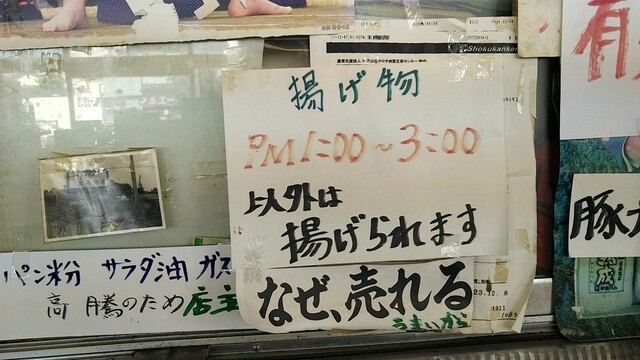 Shokukanken
揚げ物
PM1:00～3:00
以外は
揚げられます
なぜ、売れる
うまいから
パン粉 サラダ油 ガス
高騰のため店主
有
豚
23.12.8